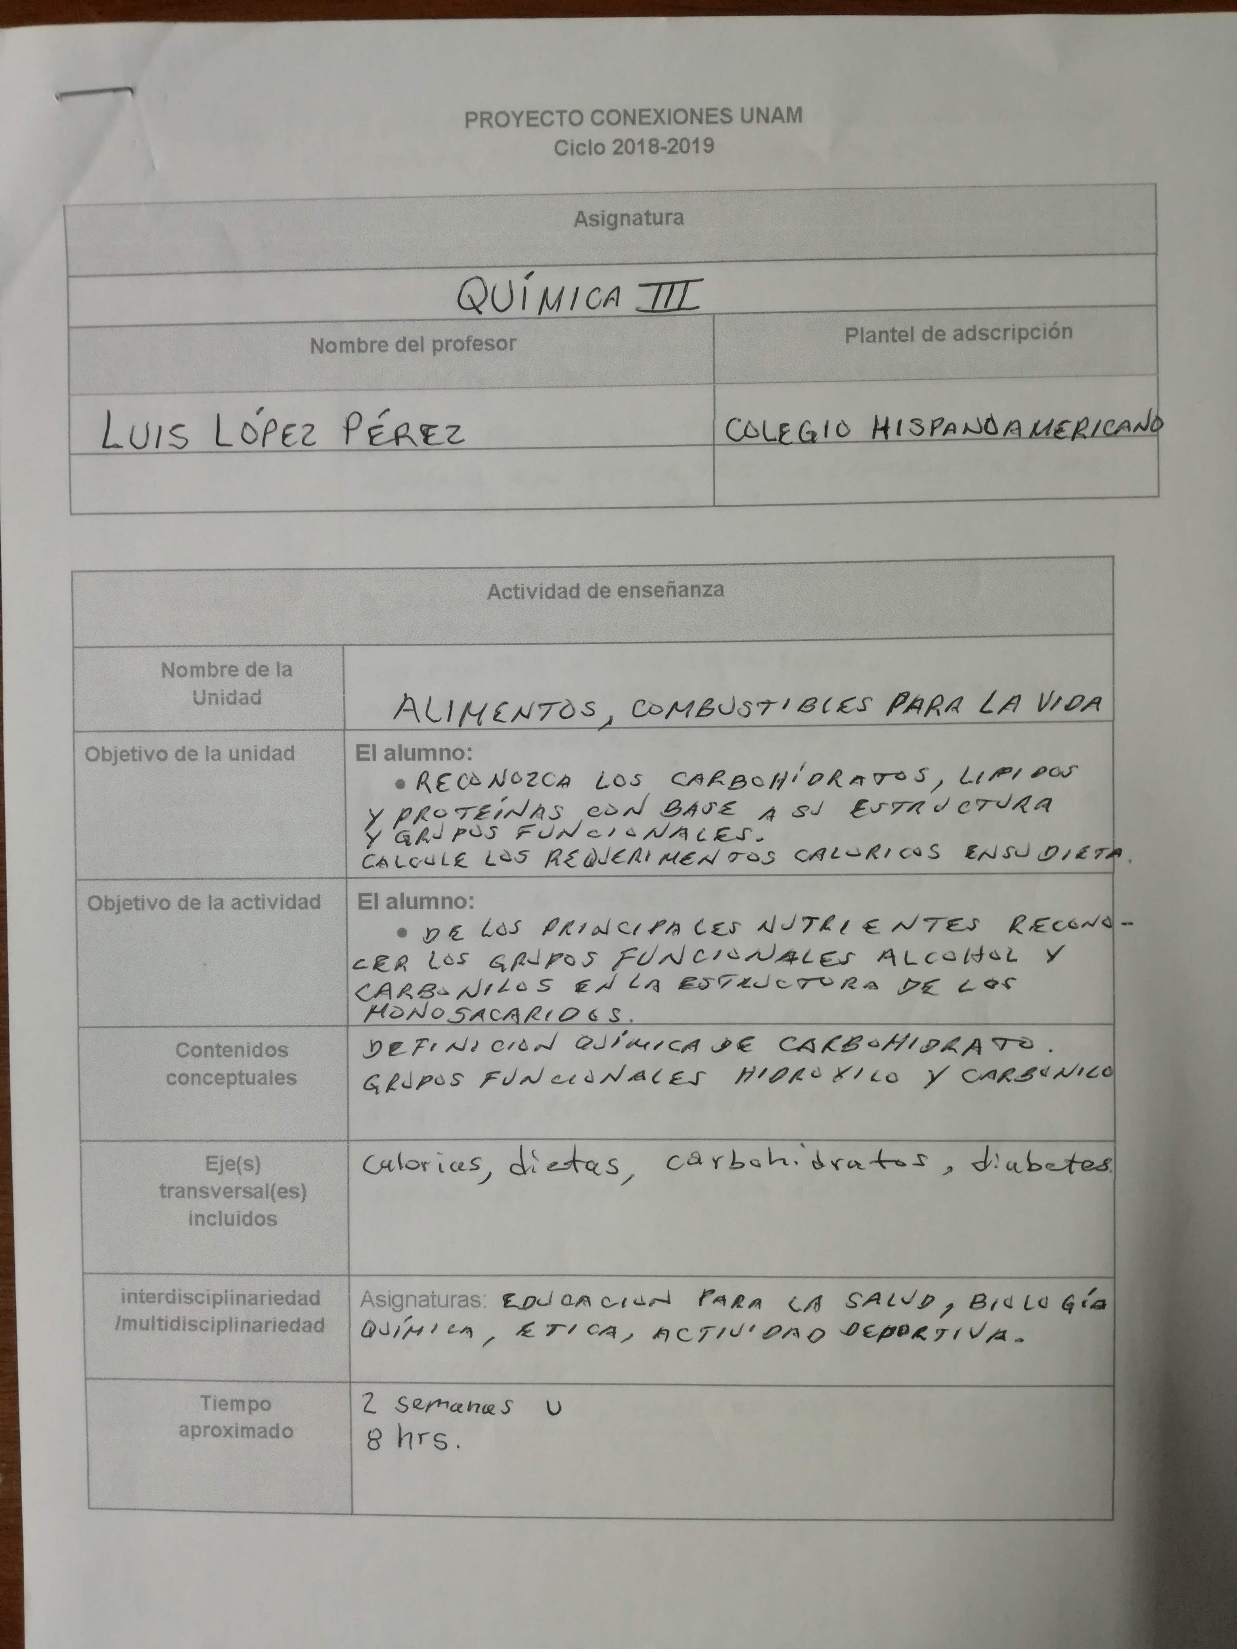 PROYECTO CONEXIONES UNAM
Ciclo 2018-2019
Asignatura
QUÍMICA III
Nombre del profesor
Plantel de adscripción
LUIS LÓPEZ PÉREZ
COLEGIO HISPANOAMERICANO
Actividad de enseñanza
Nombre de la
Unidad
ALIMENTOS, COMBUSTIBLES PARA LA VIDA
Objetivo de la unidad
El alumno:
• RECONOZCA LOS CARBOHÍDRATOS, LIPIDOS
Y PROTEÍNAS CON BASE A SU ESTRUCTURA
Y GRUPOS FUNCIONALES.
CALCULE LOS REQUERIMENTOS CALORICOS EN SU DIETA.
Objetivo de la actividad
El alumno:
• DE LOS PRINCIPALES NUTRIENTES RECONO-
CER LOS GRUPOS FUNCIONALES ALCOHOL Y
CARBONILOS EN LA ESTRUCTURA DE LOS
MONOSACARIDOS.
Contenidos
conceptuales
DEFINICION QUÍMICA DE CARBOHIDRATO.
GRUPOS FUNCIONALES HIDROXILO Y CARBONILO
Eje(s)
transversal(es)
incluidos
Calorias, dietas, carbohidratos, diabetes.
interdisciplinariedad
/multidisciplinariedad
Asignaturas: EDUCACION PARA LA SALUD, BIOLOGÍA
QUÍMICA, ETICA, ACTIVIDAD DEPORTIVA.
Tiempo
aproximado
2 semanas u
8 hrs.